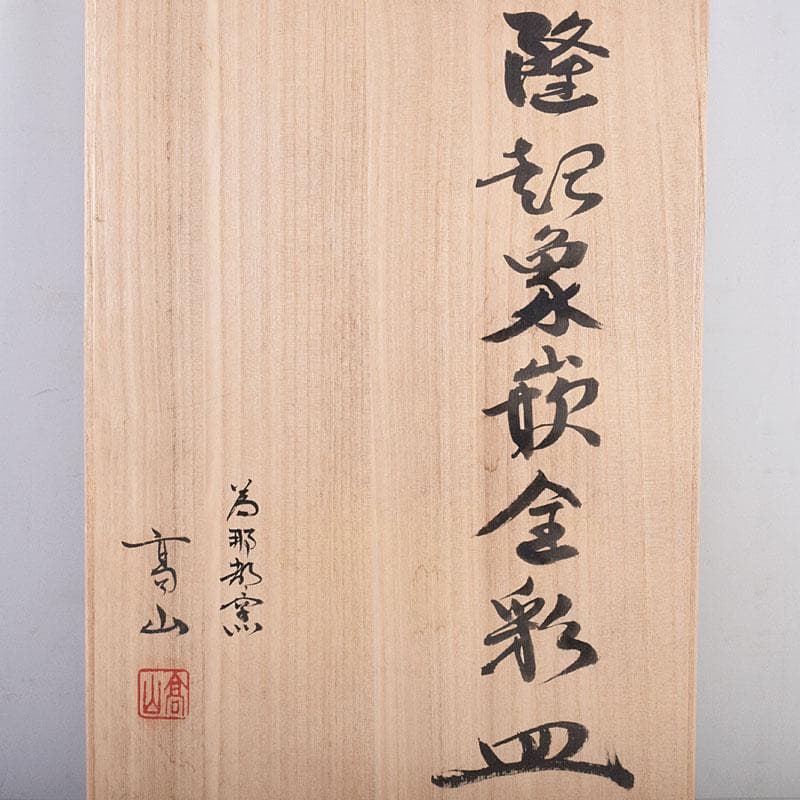 隆起象嵌金彩皿
為那都窯
高山
高山